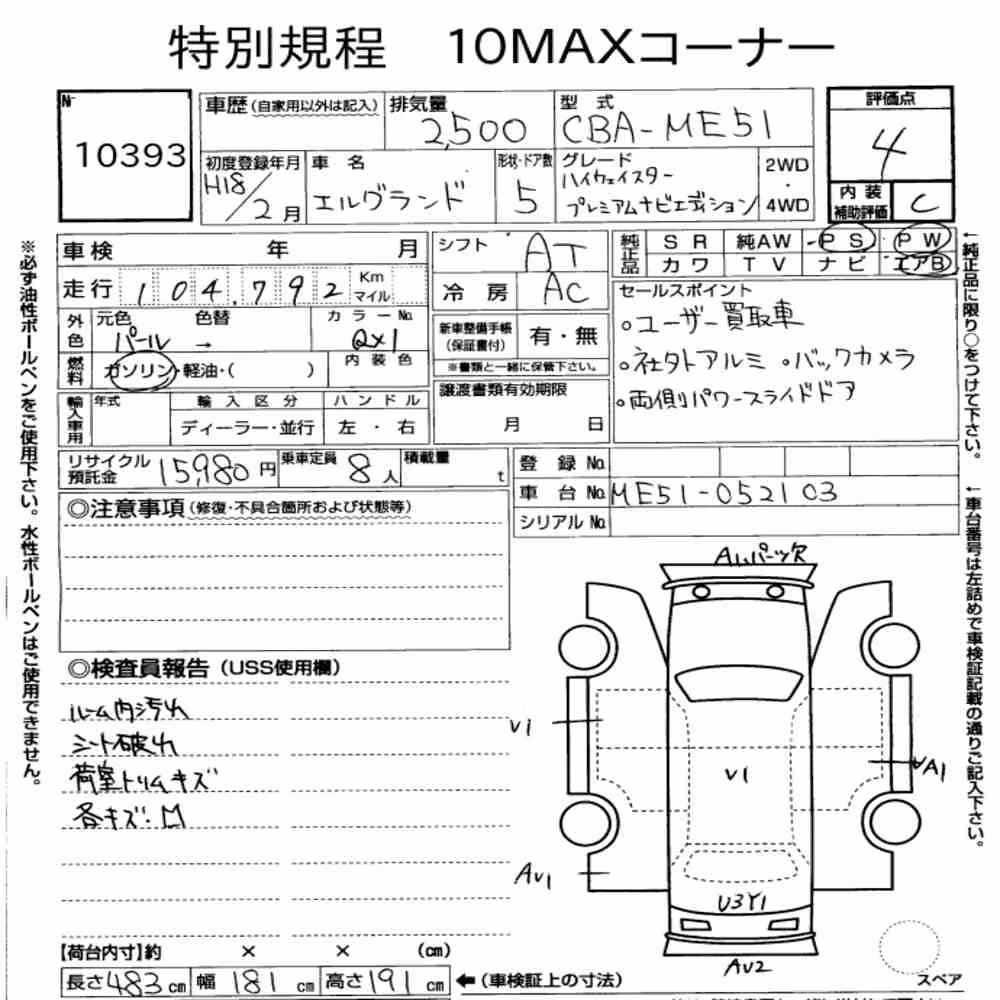 特別規程 10MAXコーナー
№ 10393
車歴 (自家用以外は記入)
排気量 2,500
型式 CBA-ME51
評価点 4
内装補助評価 C
初度登録年月 H18/2月
車名 エルグランド
形状・ドア数 5
グレード ハイウェイスター
プレミアムナビエディション
2WD・4WD
車検 年 月
シフト AT
純正品 SR 純AW PS PW
カワ TV ナビ エアB
走行 104,792 Km マイル
冷房 AC
セールスポイント
。ユーザー買取車
。社外アルミ 。バックカメラ
。両側パワースライドドア
外色 元色 パール → 色替 カラーNo. QX1
新車整備手帳(保証書付) 有・無
※書類と一緒に保管下さい。
燃料 ガソリン・軽油・( ) 内装色
譲渡書類有効期限
月 日
輸入車用 年式 輸入区分 ハンドル
ディーラー・並行 左・右
リサイクル預託金 15,980円 乗車定員 8人 積載量 t
登録No.
車台No. ME51-052103
シリアルNo.
◎注意事項 (修復・不具合箇所および状態等)
◎検査員報告 (USS使用欄)
ルーム内汚れ
シート破れ
荷室トリムキズ
各キズ:凹
Aルパーツ欠
V1
V1
VA1
AV1
U3Y1
AU2
スペア
【荷台内寸】約 × × (cm)
長さ483cm 幅181cm 高さ191cm ←(車検証上の寸法)
※必ず油性ボールペンをご使用下さい。水性ボールペンはご使用できません。
←純正品に限り○をつけて下さい。
←車台番号は左詰めで車検証記載の通りご記入下さい。